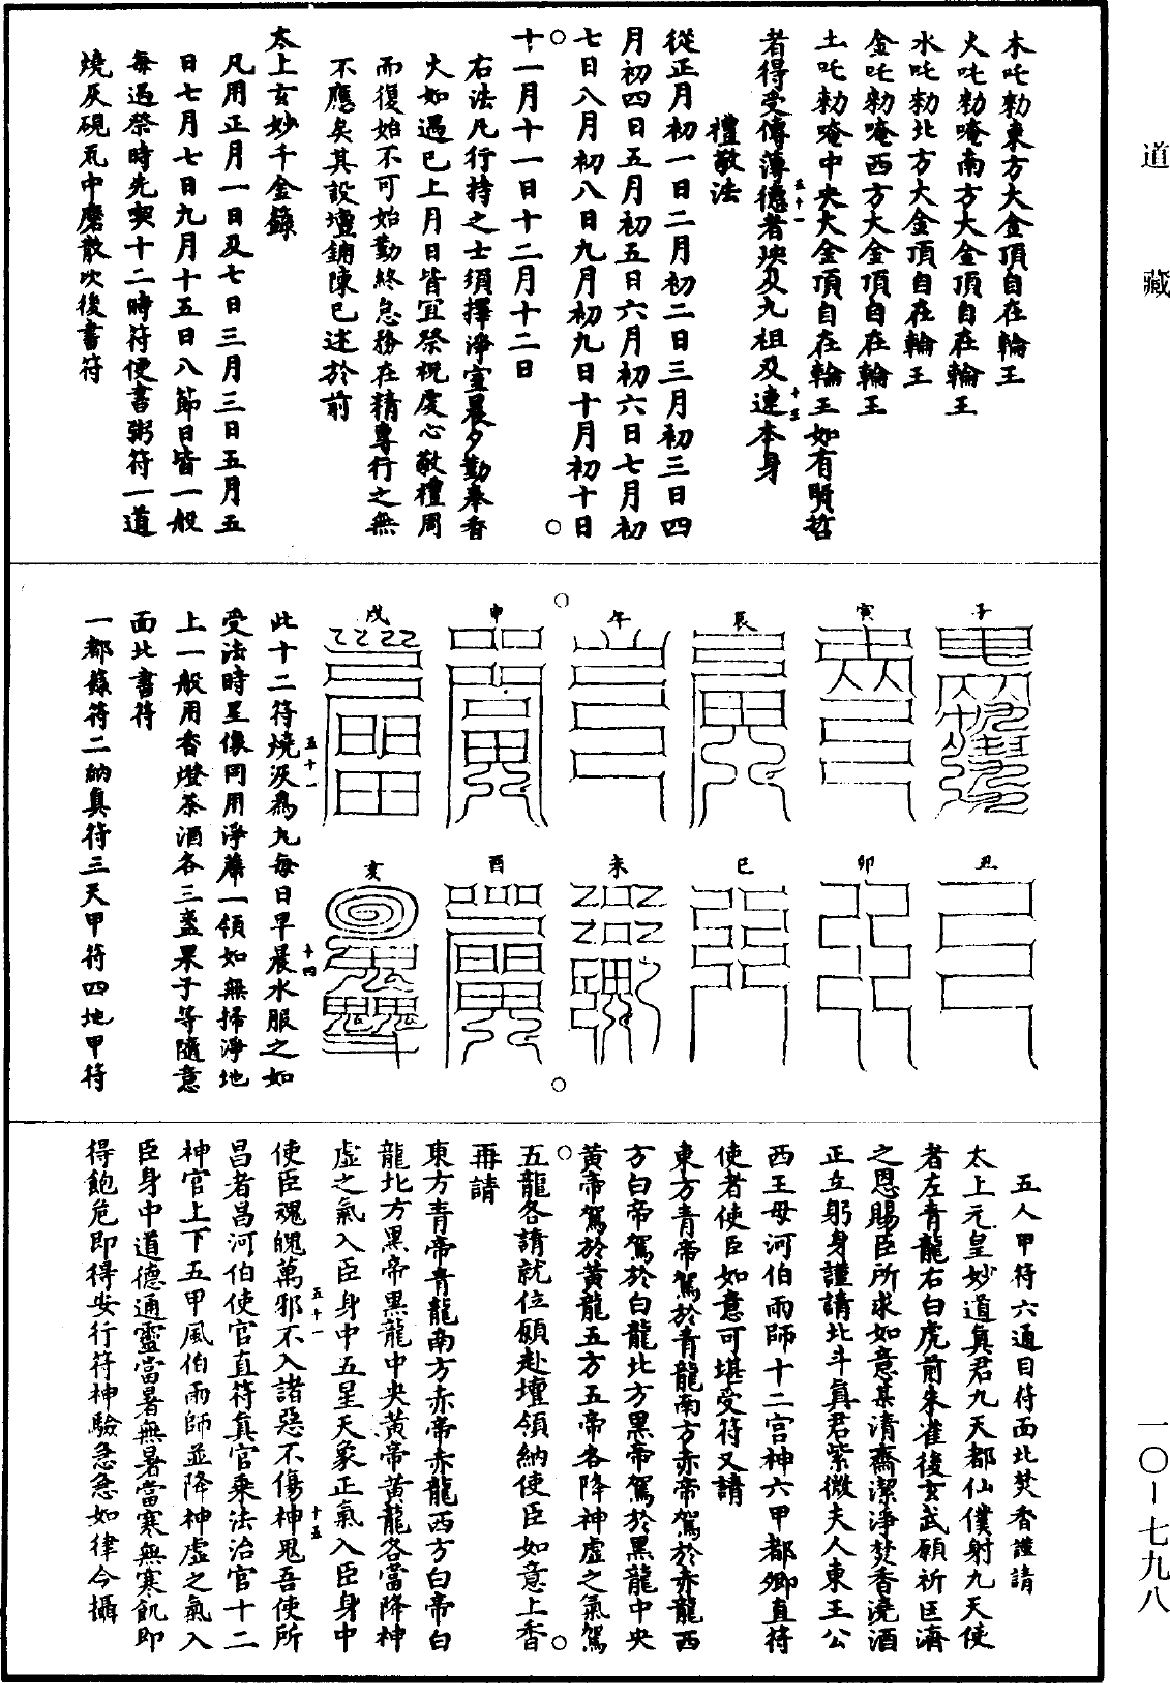 道藏
木吒勑東方大金頂自在輪王
火吒勑唵南方大金頂自在輪王
水吒勑北方大金頂自在輪王
金吒勑唵西方大金頂自在輪王
土吒勑唵中央大金頂自在輪王如有賢哲
者得受傳薄德者殃及九祖及連本身
五十一
十三
禮敬法
從正月初一日二月初二日三月初三日四
月初四日五月初五日六月初六日七月初
七日八月初八日九月初九日十月初十日
十一月十一日十二月十二日
右法凡行持之士須擇淨室晨夕勤奉香
火如遇已上月日皆宜祭祝虔心敬禮周
而復始不可始勤終怠務在精專行之無
不應矣其設壇鋪陳已述於前
太上玄妙千金籙
凡用正月一日及七日三月三日五月五
日七月七日九月十五日八節日皆一般
每遇祭時先喫十二時符便書粥符一道
燒灰硯瓦中磨散次後書符
子
寅
辰
午
申
戌
丑
卯
巳
未
酉
亥
此十二符燒灰為丸每日早晨水服之如
五十一
十四
受法時星像同用淨蓆一領如無掃淨地
上一般用香燈茶酒各三盞果子等隨意
面北書符
一都籙符二納真符三天甲符四地甲符
五人甲符六通目符面北焚香謹請
太上元皇妙道真君九天都仙僕射九天使
者左青龍右白虎前朱雀後玄武願祈臣濟
之恩賜臣所求如意某清齋潔淨焚香澆酒
正立躬身謹請北斗真君紫微夫人東王公
西王母河伯雨師十二宮神六甲都卿直符
使者使臣如意可堪受符又請
東方青帝駕於青龍南方赤帝駕於赤龍西
方白帝駕於白龍北方黑帝駕於黑龍中央
黃帝駕於黃龍五方五帝各降神虛之氣駕
五龍各請就位願赴壇領納使臣如意上香
再請
東方青帝青龍南方赤帝赤龍西方白帝白
龍北方黑帝黑龍中央黃帝黃龍各當降神
虛之氣入臣身中五星天象正氣入臣身中
使臣魂魄萬邪不入諸惡不傷神鬼吾使所
五十一
十五
昌者昌河伯使官直符真官乘法治官十二
神官上下五甲風伯雨師並降神虛之氣入
臣身中道德通靈當暑無暑當寒無寒飢即
得飽危即得安行符神驗急急如律令攝
一〇-七九八